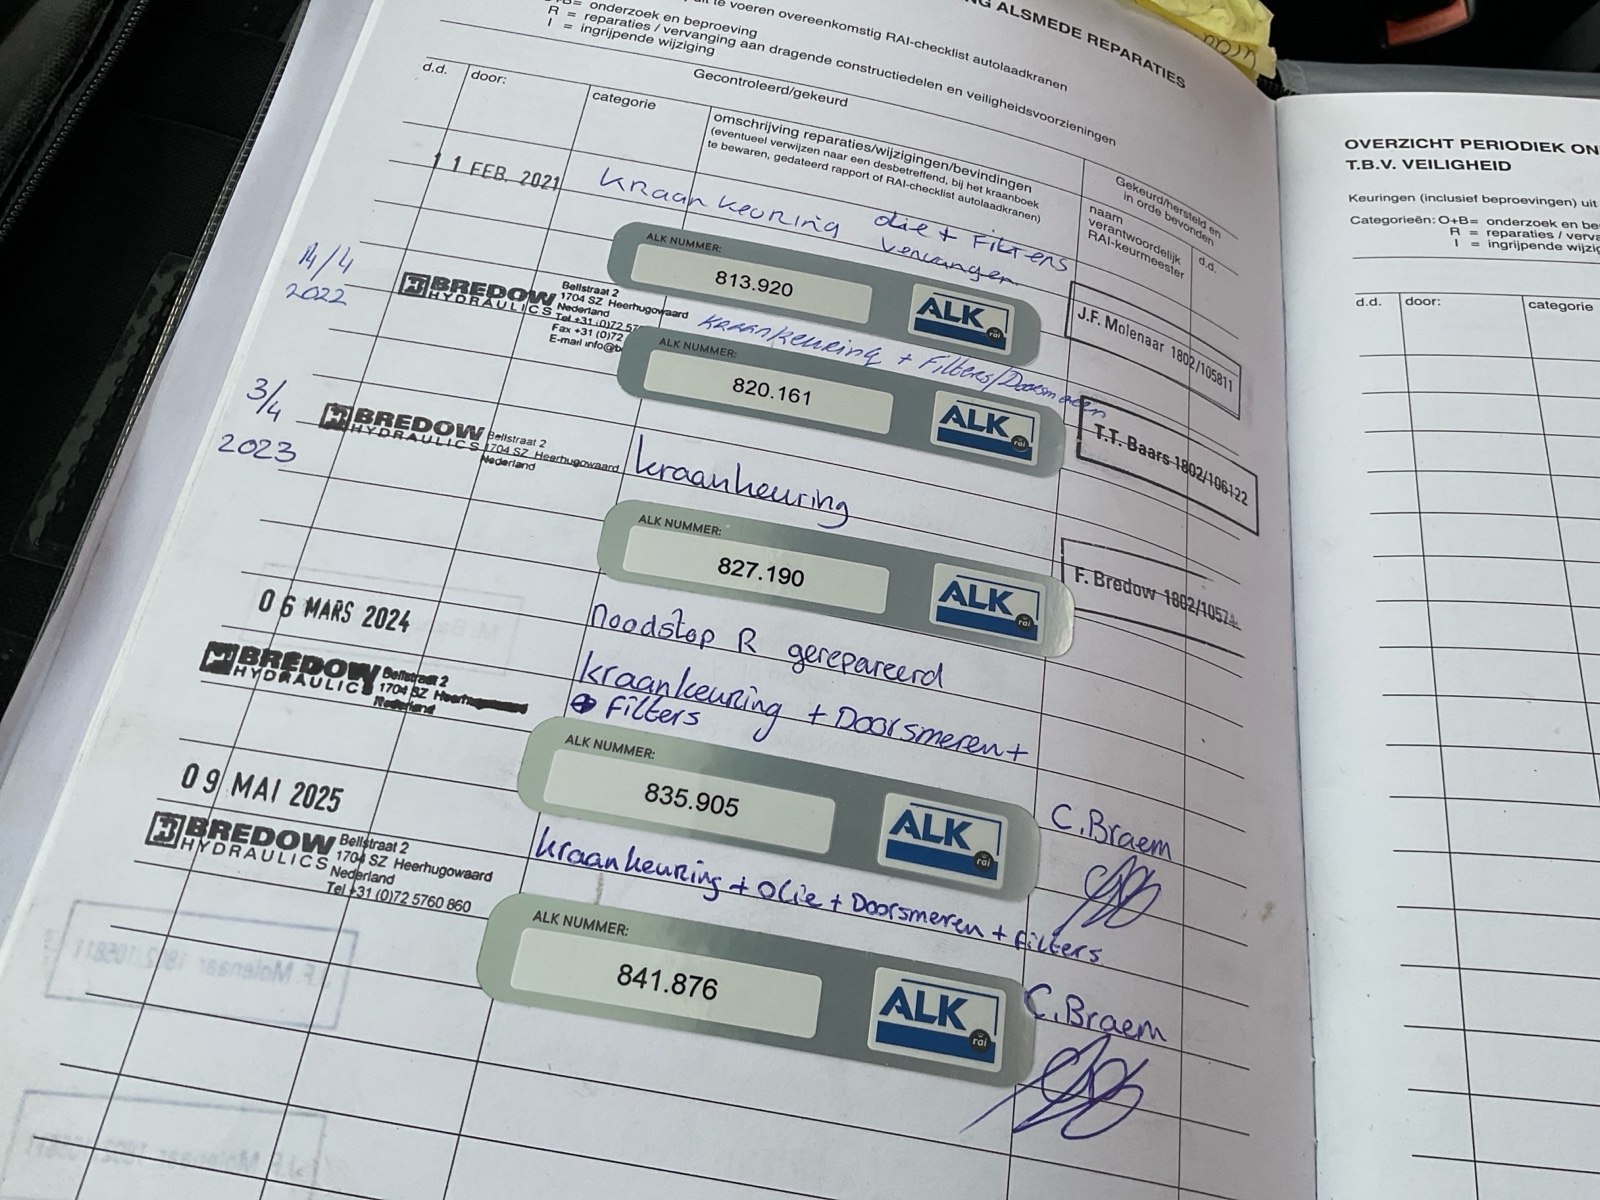 NG ALSMEDE REPARATIES
uit te voeren overeenkomstig RAI-checklist autolaadkranen
O+B= onderzoek en beproeving
R = reparaties / vervanging aan dragende constructiedelen en veiligheidsvoorzieningen
I = ingrijpende wijziging
Gecontroleerd/gekeurd
d.d.
door:
categorie
omschrijving reparaties/wijzigingen/bevindingen
(eventueel verwijzen naar een desbetreffend, bij het kraanboek
te bewaren, gedateerd rapport of RAI-checklist autolaadkranen)
Gekeurd/hersteld en
in orde bevonden
naam
verantwoordelijk
RAI-keurmeester
d.d.
11 FEB. 2021
kraankeuring olie + Filters
vervangen
ALK NUMMER:
813.920
ALK
rai
J.F. Molenaar 1802/105811
14/4
2022
BREDOW
HYDRAULICS
Bellstraat 2
1704 SZ Heerhugowaard
Nederland
Tel +31 (0)72 57
Fax +31 (0)72
E-mail info@b
kraankeuring + Filters/Doorsmeren
ALK NUMMER:
820.161
ALK
rai
T.T. Baars 1802/106122
3/4
2023
BREDOW
HYDRAULICS
Bellstraat 2
1704 SZ Heerhugowaard
Nederland
kraankeuring
ALK NUMMER:
827.190
ALK
rai
F. Bredow 1802/1057
06 MARS 2024
noodstop R gerepareerd
BREDOW
HYDRAULICS
Bellstraat 2
1704 SZ Heerhugowaard
Nederland
kraankeuring + Doorsmeren +
Filters
ALK NUMMER:
835.905
ALK
rai
C.Braem
09 MAI 2025
BREDOW
HYDRAULICS
Bellstraat 2
1704 SZ Heerhugowaard
Nederland
Tel +31 (0)72 5760 860
kraankeuring + Olie + Doorsmeren + filters
ALK NUMMER:
841.876
ALK
rai
C.Braem
J.F. Molenaar 1802/105811
OVERZICHT PERIODIEK ON
T.B.V. VEILIGHEID
Keuringen (inclusief beproevingen) uit
Categorieën: O+B= onderzoek en be
R = reparaties / verva
I = ingrijpende wijzig
d.d.
door:
categorie